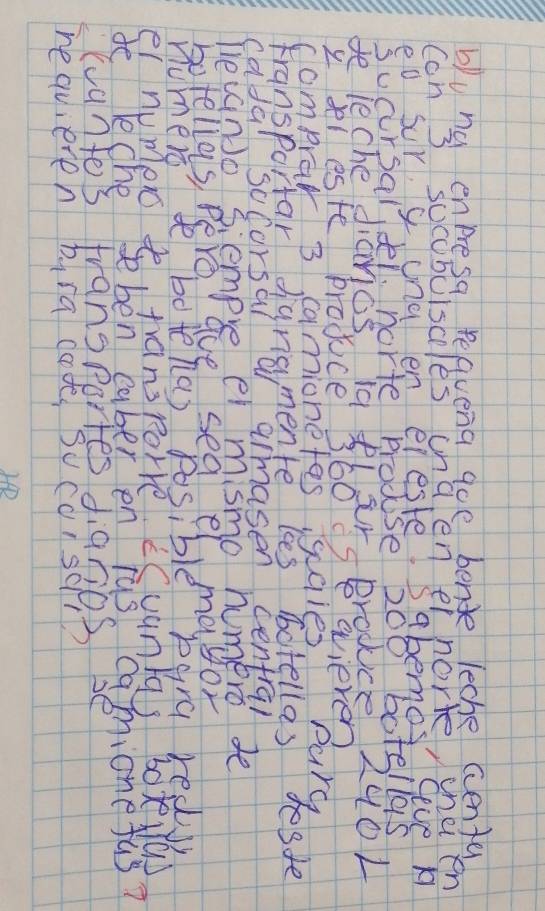 b) una enpresa pequeña que bende leche cuenta
con 3 sucubuisales una en el norte, una en
eu sur y una en el este. Sabemos que la
sucursal del norte produse 200 botellas
de leche diarios la del sur produce 240 L
y del este produce 360 quieren
comprar 3 camionetas iguales para
transportar diariamente las botellas desde
cada sucursal almasen central
llevando siempre el mismo numero de
botellas, pero que sea el mayor
numero de botellas posible para
el numero de transporte. ¿Cuantas botellas
de leche deben cyber en las camionetas?
¿Cuantos transportes diarios se
requieren cada sucursal?